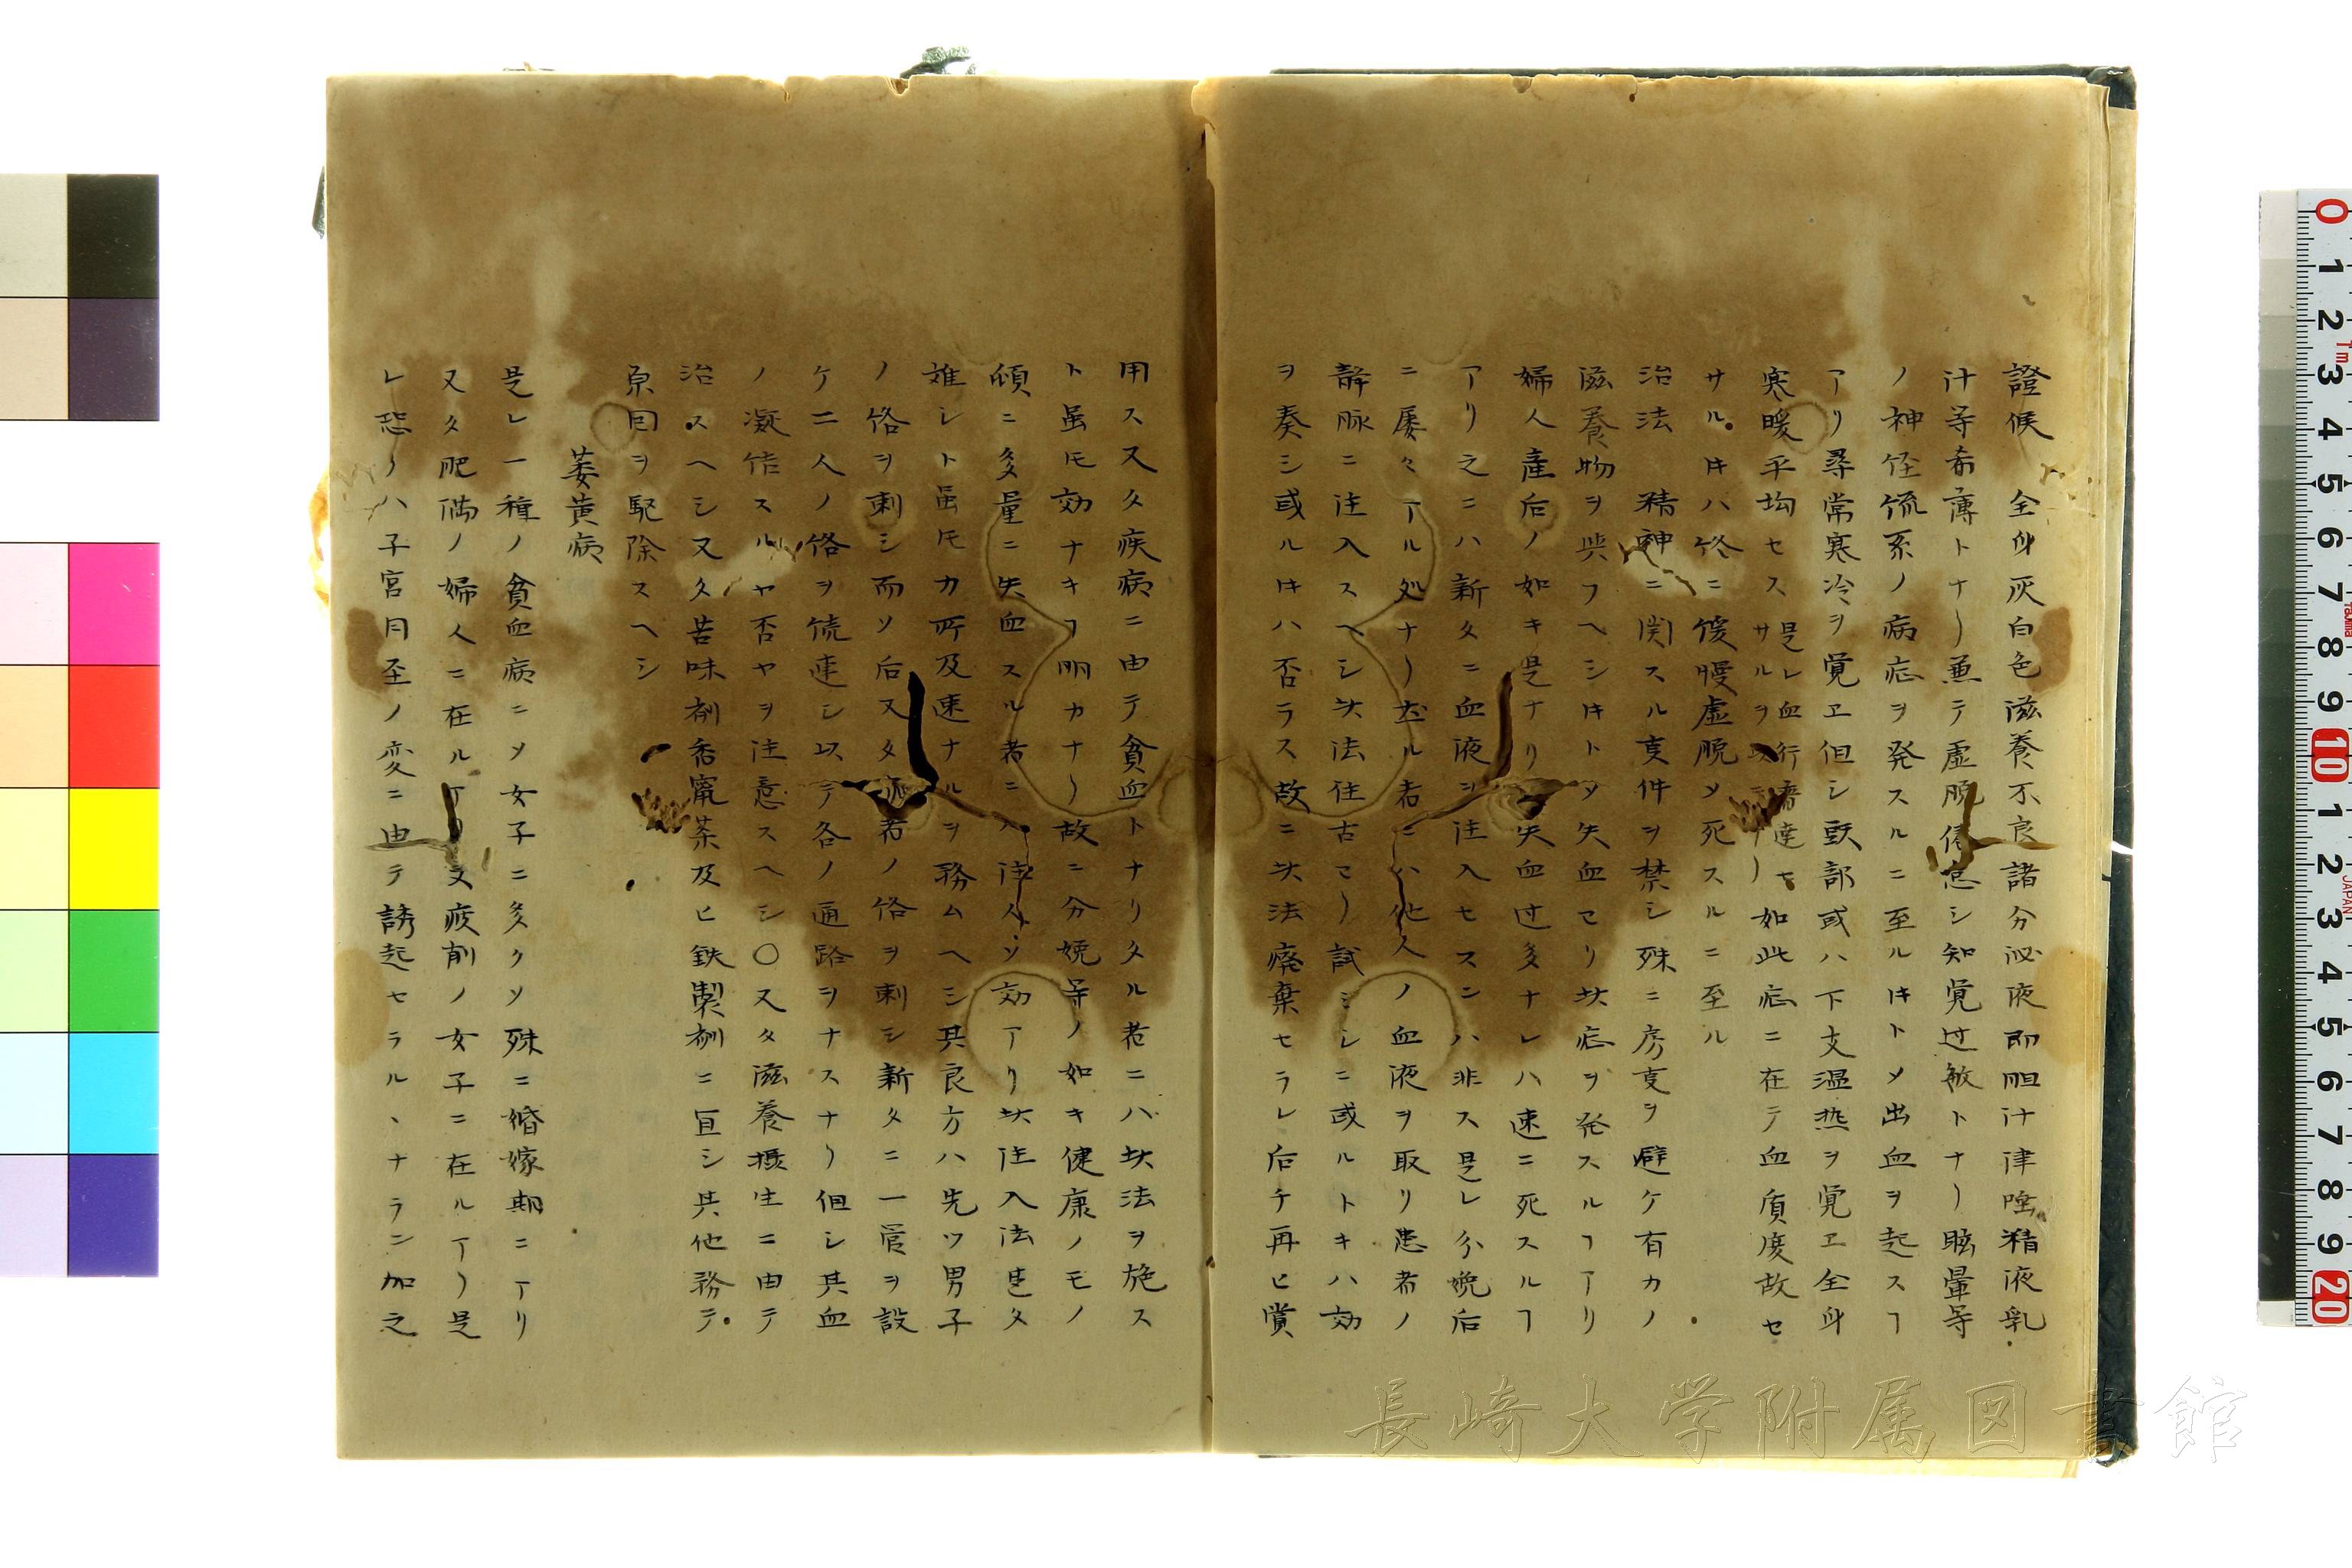 證候　全身灰白色滋養不良諸分泌液即胆汁津唾精液乳
汁等希薄トナリ兼テ虚脱倦怠シ知覚过敏トナリ眩暈等
ノ神径流系ノ病症ヲ発スルニ至ルヰトメ出血ヲ起スヿ
アリ尋常寒冷ヲ覚ヱ但シ頭部或ハ下支温热ヲ覚ヱ全身
寒暖平均セス
是レ血行
サルヲ以テナリ
如此症ニ在テ血質废故セ
サルヰハ终ニ慢虚脱メ死スルニ至ル
治法　精神ニ関スル変件ヲ禁シ殊ニ房叓ヲ避ケ有力ノ
滋養物ヲ與フヘシヰトメ失血セリ此症ヲ発スルヿアリ
婦人産后ノ如キ是ナリ失血过多ナレハ速ニ死スルヿ
アリ之ニハ新タニ血液ヲ注入セスンハ非ス是レ分娩后
ニ屡々アル処ナリ
ル者ニハ他人ノ血液ヲ取リ患者ノ
静脉ニ注入スヘシ此法往古ヨリ試ミシニ或ルトキハ効
ヲ奏シ或ルヰハ否ラス故ニ此法廃棄セラレ后チ再ヒ賞
用ス又久疾病ニ由テ貧血トナリタル者ニハ此法ヲ施ス
ト虽モ効ナキヿ明カナリ故ニ分娩等ノ如キ健康ノモノ
傾ニ多量ニ失血スル者ニハ注入メ効アリ此注入法甚タ
难シト虽モカ所及速ナルヲ務ムヘシ其良方ハ先ツ男子
ノ络ヲ刺シ而ソ后又タ
者ノ络ヲ刺シ新タニ一管ヲ設
ケ二人ノ络ヲ流連シ以テ各ノ通路ヲナスナリ但シ其血
ノ凝结スルヤ否ヤヲ注意スヘシ〇又タ滋養摂生ニ由テ
治スヘシ又久苦味剤香竄茶及ヒ鉄製剤ニ宜シ其他務テ
原因ヲ駆除スヘシ
萎黄病
是レ一種ノ貧血病ニメ女子ニ多クソ殊ニ婚嫁期ニアリ
又タ肥満ノ婦人ニ在ルアリ又疲削ノ女子ニ在ルアリ是
レ恐クハ子宮月圣ノ変ニ由テ誘起セラルヽナラン加之
0 1 2 3 4 5 6 7 8 9 10 1 2 3 4 5 6 7 8 9 20
JAPAN
長崎大学附属図書館